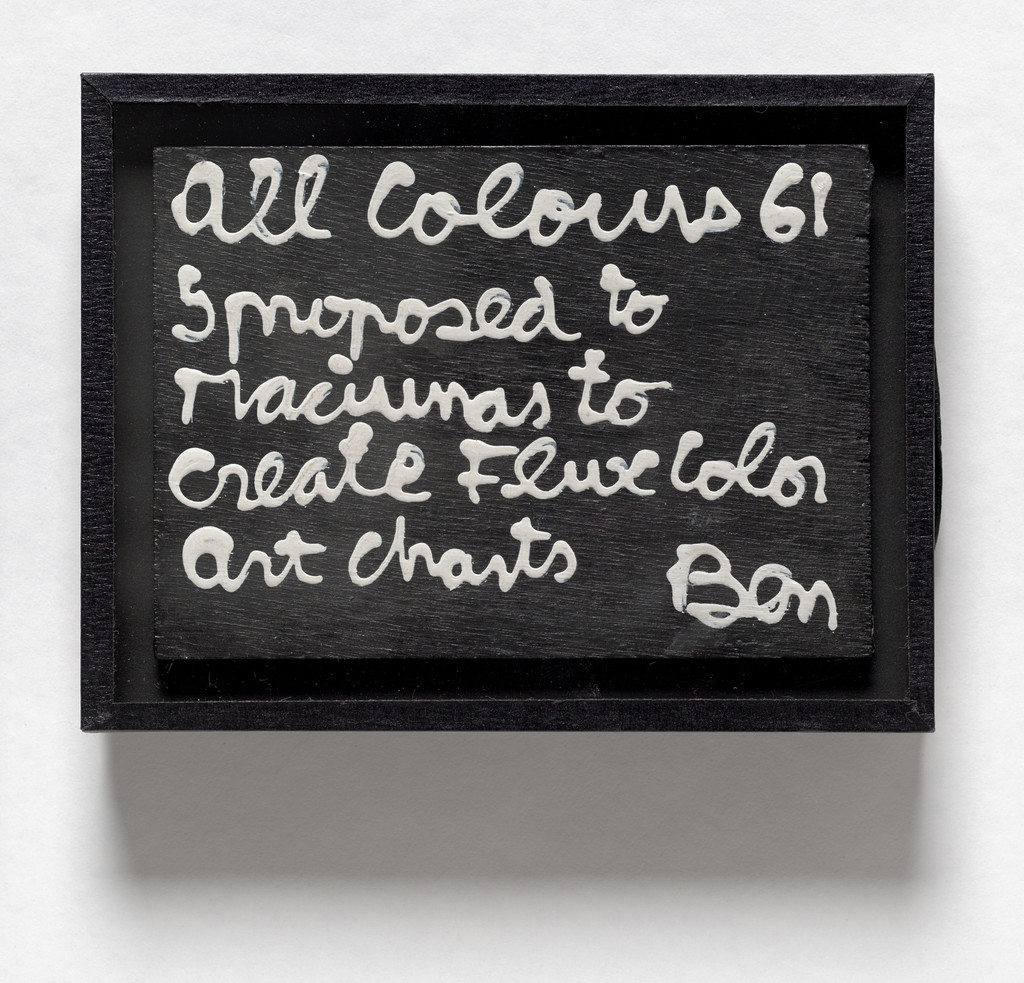 All Colours 61
I proposed to
Maciunas to
create Flux Color
Art charts
Ben